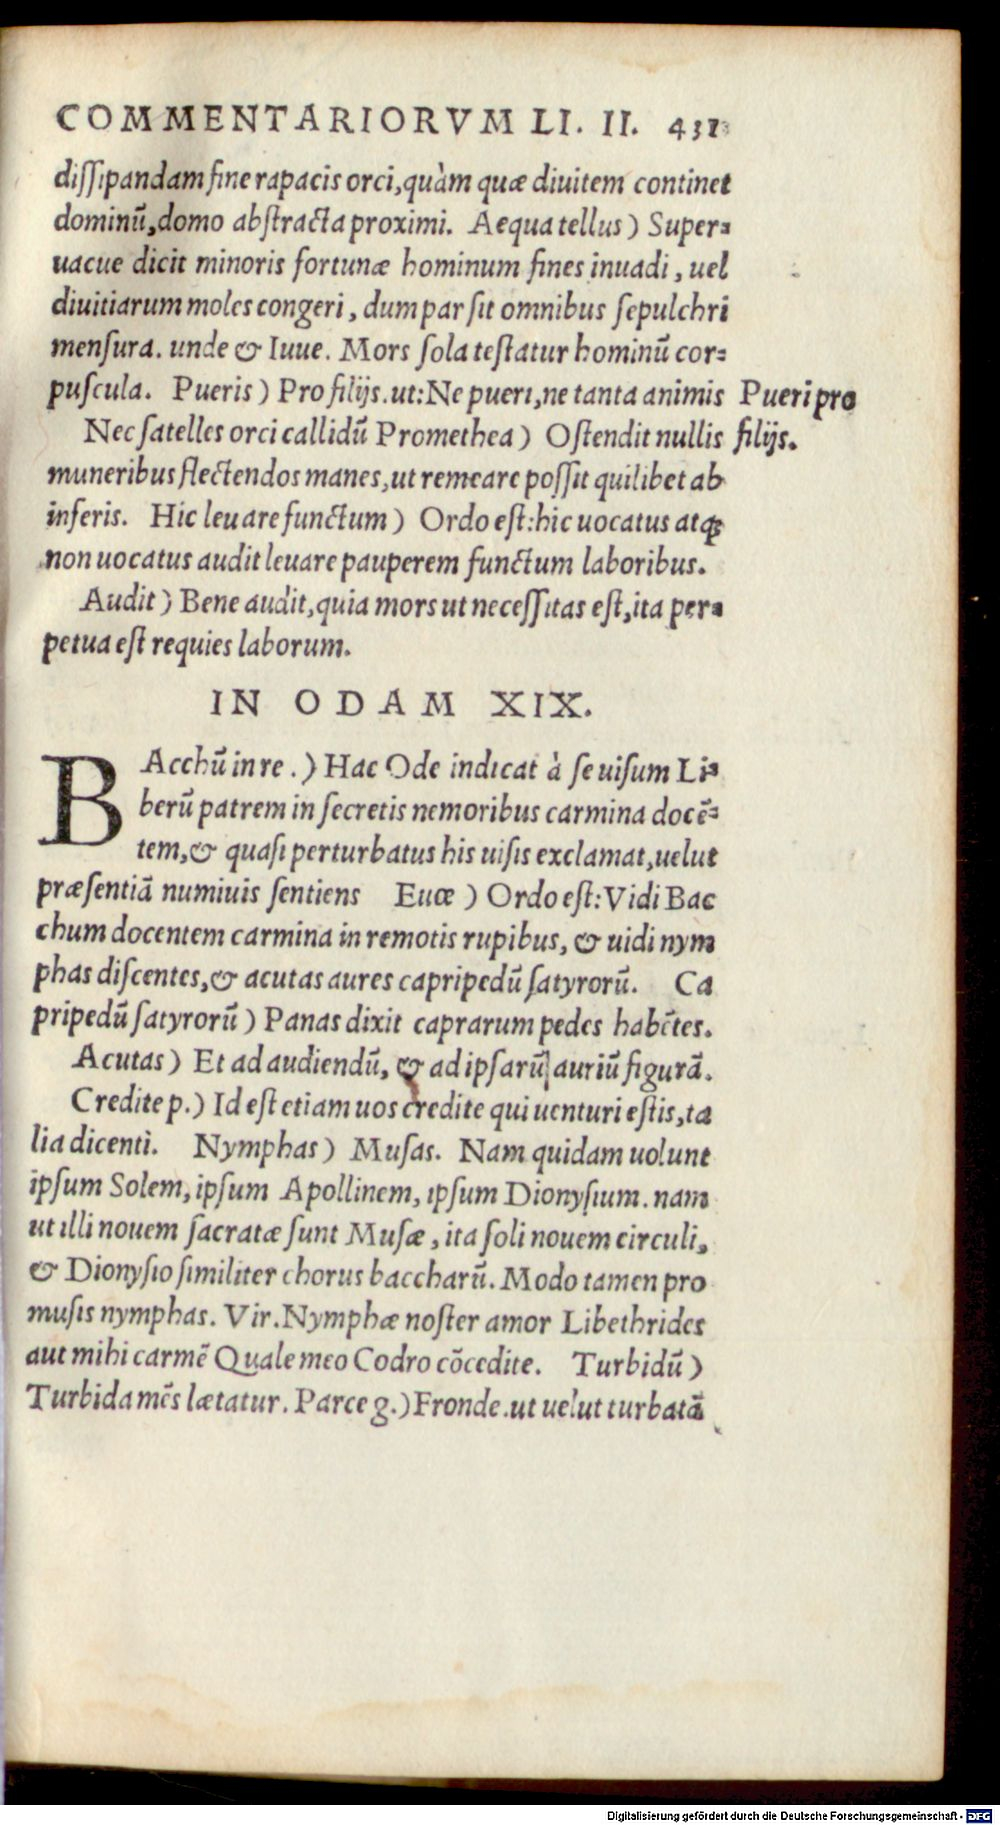 COMMENTARIORVM LI. II. 431
diſſipandam fine rapacis orci, quàm quæ diuitem continet
dominũ, domo abſtracta proximi. Aequa tellus) Super=
uacue dicit minoris fortunæ hominum fines inuadi, uel
diuitiarum moles congeri, dum par ſit omnibus ſepulchri
menſura. unde & Iuue. Mors ſola teſtatur hominũ cor=
puſcula. Pueris) Pro filijs. ut: Ne pueri, ne tanta animis
Pueri pro
filijs.
Nec ſatelles orci callidũ Promethea) Oſtendit nullis
muneribus flectendos manes, ut remeare poſſit quilibet ab
inferis. Hic leuare functum) Ordo eſt: hic uocatus atq;
non uocatus audit leuare pauperem functum laboribus.
Audit) Bene audit, quia mors ut neceſſitas eſt, ita per=
petua eſt requies laborum.
IN ODAM XIX.
BAcchũ in re.) Hac Ode indicat à ſe uiſum Li=
berũ patrem in ſecretis nemoribus carmina docẽ=
tem, & quaſi perturbatus his uiſis exclamat, uelut
præſentiã numiuis ſentiens Euœ) Ordo eſt: Vidi Bac
chum docentem carmina in remotis rupibus, & uidi nym
phas diſcentes, & acutas aures capripedũ ſatyrorũ. Ca
pripedũ ſatyrorũ) Panas dixit caprarum pedes habẽtes.
Acutas) Et ad audiendũ, & ad ipſarũ auriũ figurã.
Credite p.) Id eſt etiam uos credite qui uenturi eſtis, ta
lia dicenti. Nymphas) Muſas. Nam quidam uolunt
ipſum Solem, ipſum Apollinem, ipſum Dionyſium. nam
ut illi nouem ſacratæ ſunt Muſæ, ita ſoli nouem circuli,
& Dionyſio ſimiliter chorus baccharũ. Modo tamen pro
muſis nymphas. Vir. Nymphæ noſter amor Libethrides
aut mihi carmẽ Quale meo Codro cõcedite. Turbidũ)
Turbida mẽs lætatur. Parce g.) Fronde. ut uelut turbatã
Digitalisierung gefördert durch die Deutsche Forschungsgemeinschaft - DFG